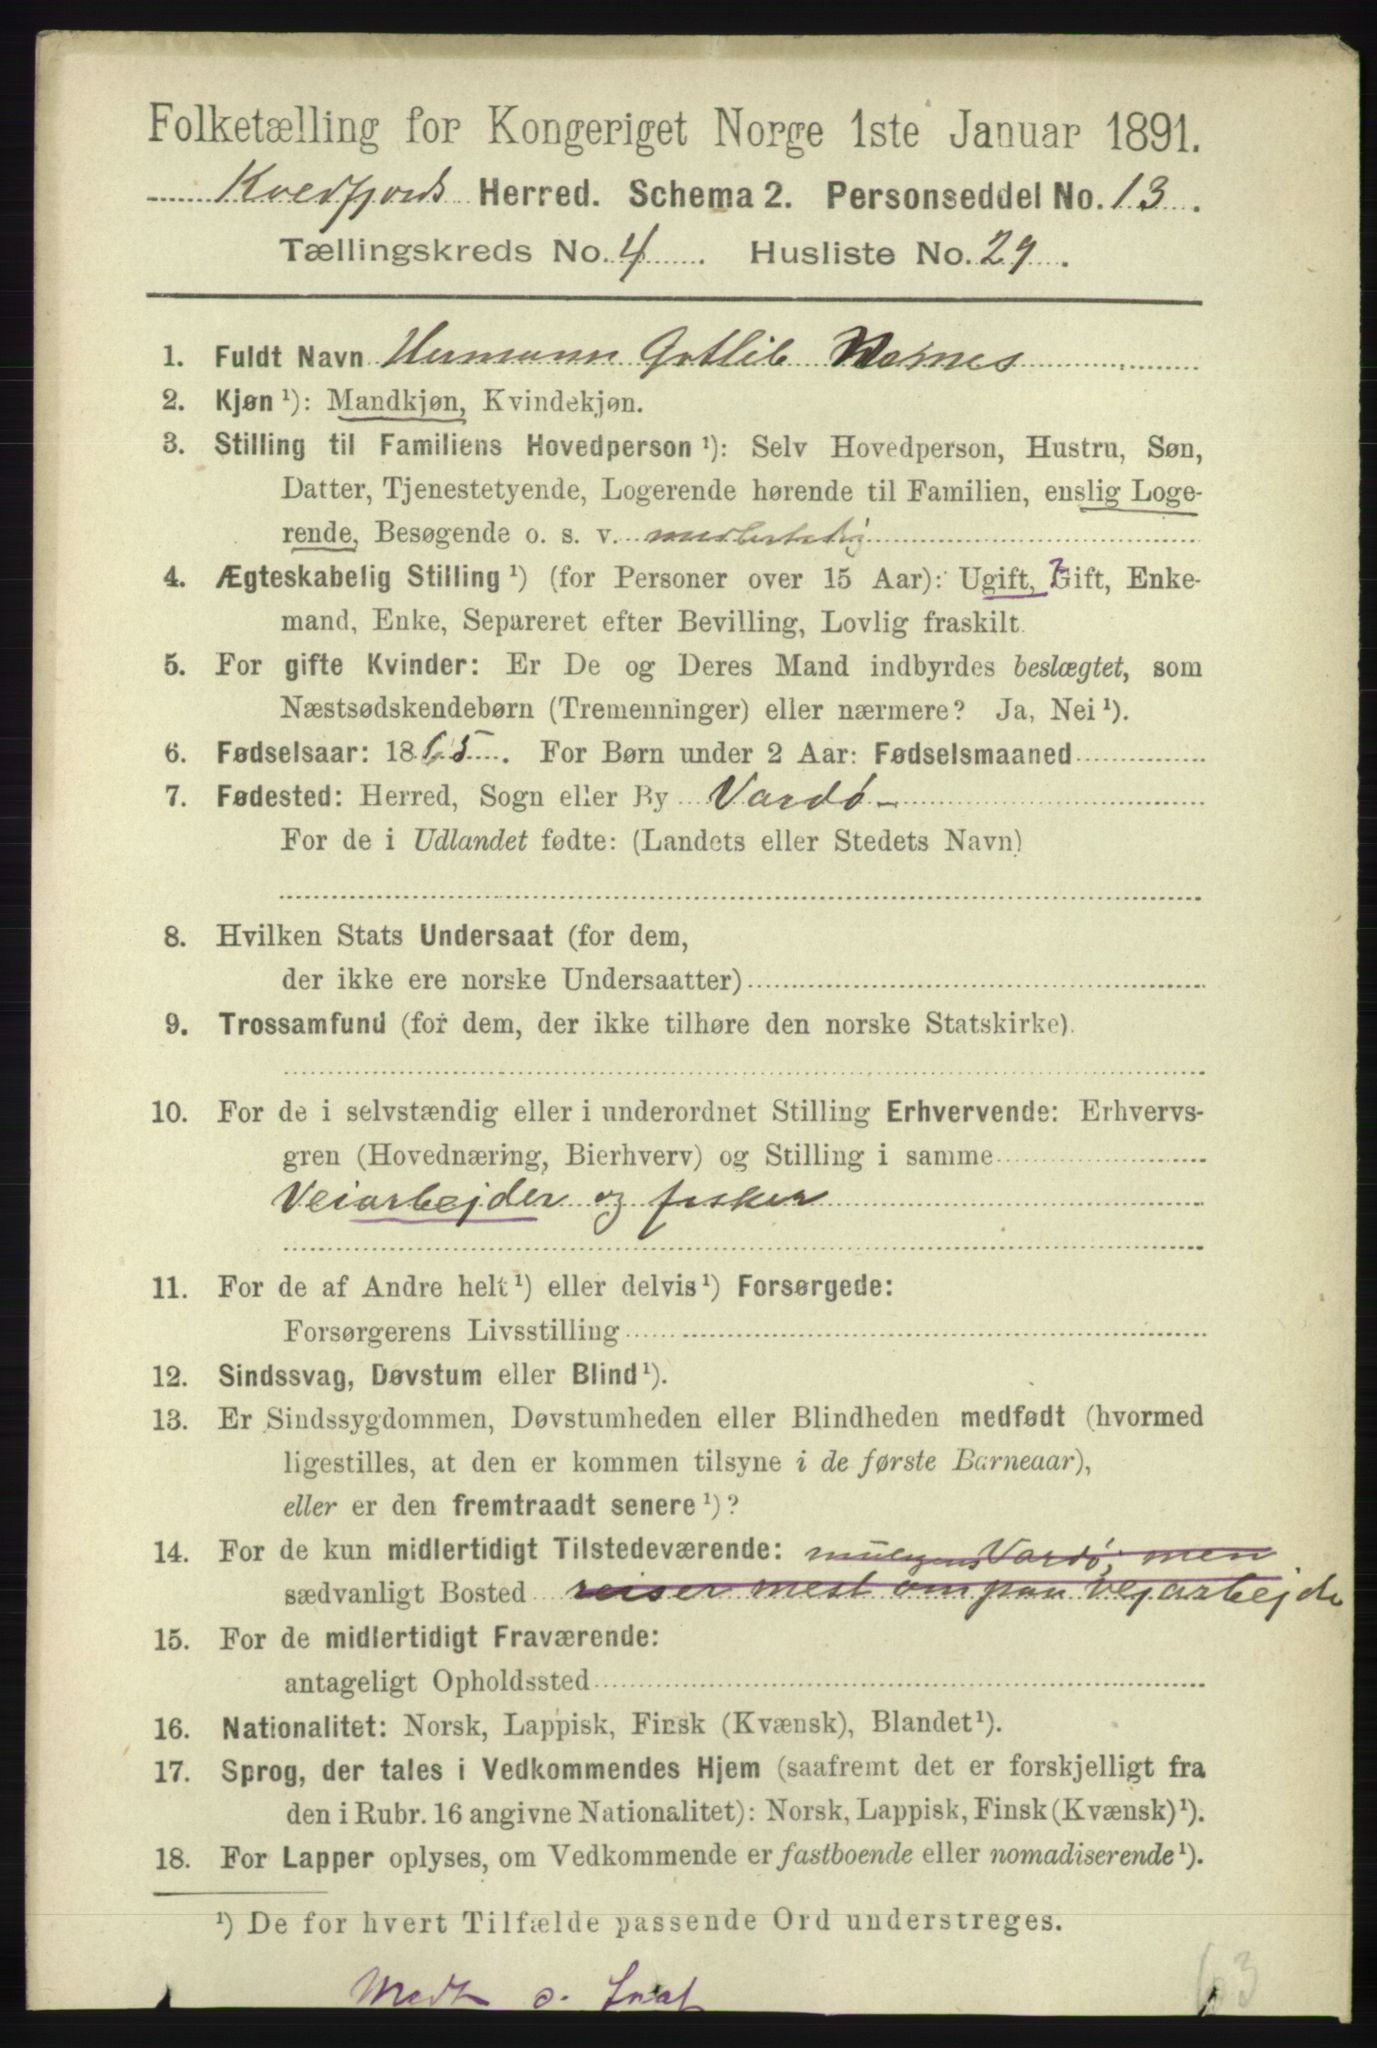 Folketælling for Kongeriget Norge 1ste Januar 1891.
Kvedfjords Herred. Schema 2. Personseddel No. 13.
Tællingskreds No. 4. Husliste No. 29.
1. Fuldt Navn Hermann Gotlib
2. Kjøn ¹): Mandkjøn, Kvindekjøn.
3. Stilling til Familiens Hovedperson ¹): Selv Hovedperson, Hustru, Søn,
Datter, Tjenestetyende, Logerende hørende til Familien, enslig Loge-
rende, Besøgende o. s. v. midlertidig
4. Ægteskabelig Stilling ¹) (for Personer over 15 Aar): Ugift, Gift, Enke-
mand, Enke, Separeret efter Bevilling, Lovlig fraskilt.
5. For gifte Kvinder: Er De og Deres Mand indbyrdes beslægtet, som
Næstsødskendebørn (Tremenninger) eller nærmere? Ja, Nei ¹).
6. Fødselsaar: 1865. For Børn under 2 Aar: Fødselsmaaned
7. Fødested: Herred, Sogn eller By Vardø
For de i Udlandet fødte: (Landets eller Stedets Navn)
8. Hvilken Stats Undersaat (for dem,
der ikke ere norske Undersaatter)
9. Trossamfund (for dem, der ikke tilhøre den norske Statskirke).
10. For de i selvstændig eller i underordnet Stilling Erhvervende: Erhvervs-
gren (Hovednæring, Bierhverv) og Stilling i samme
Veiarbejder og fisker
11. For de af Andre helt ¹) eller delvis ¹) Forsørgede:
Forsørgerens Livsstilling
12. Sindssvag, Døvstum eller Blind ¹).
13. Er Sindssygdommen, Døvstumheden eller Blindheden medfødt (hvormed
ligestilles, at den er kommen tilsyne i de første Barneaar),
eller er den fremtraadt senere ¹)?
14. For de kun midlertidigt Tilstedeværende: Vardø, men
sædvanligt Bosted reiser mest om paa vejarbejde
15. For de midlertidigt Fraværende:
antageligt Opholdssted
16. Nationalitet: Norsk, Lappisk, Finsk (Kvænsk), Blandet ¹).
17. Sprog, der tales i Vedkommendes Hjem (saafremt det er forskjelligt fra
den i Rubr. 16 angivne Nationalitet): Norsk, Lappisk, Finsk (Kvænsk) ¹).
18. For Lapper oplyses, om Vedkommende er fastboende eller nomadiserende ¹).
¹) De for hvert Tilfælde passende Ord understreges.
63